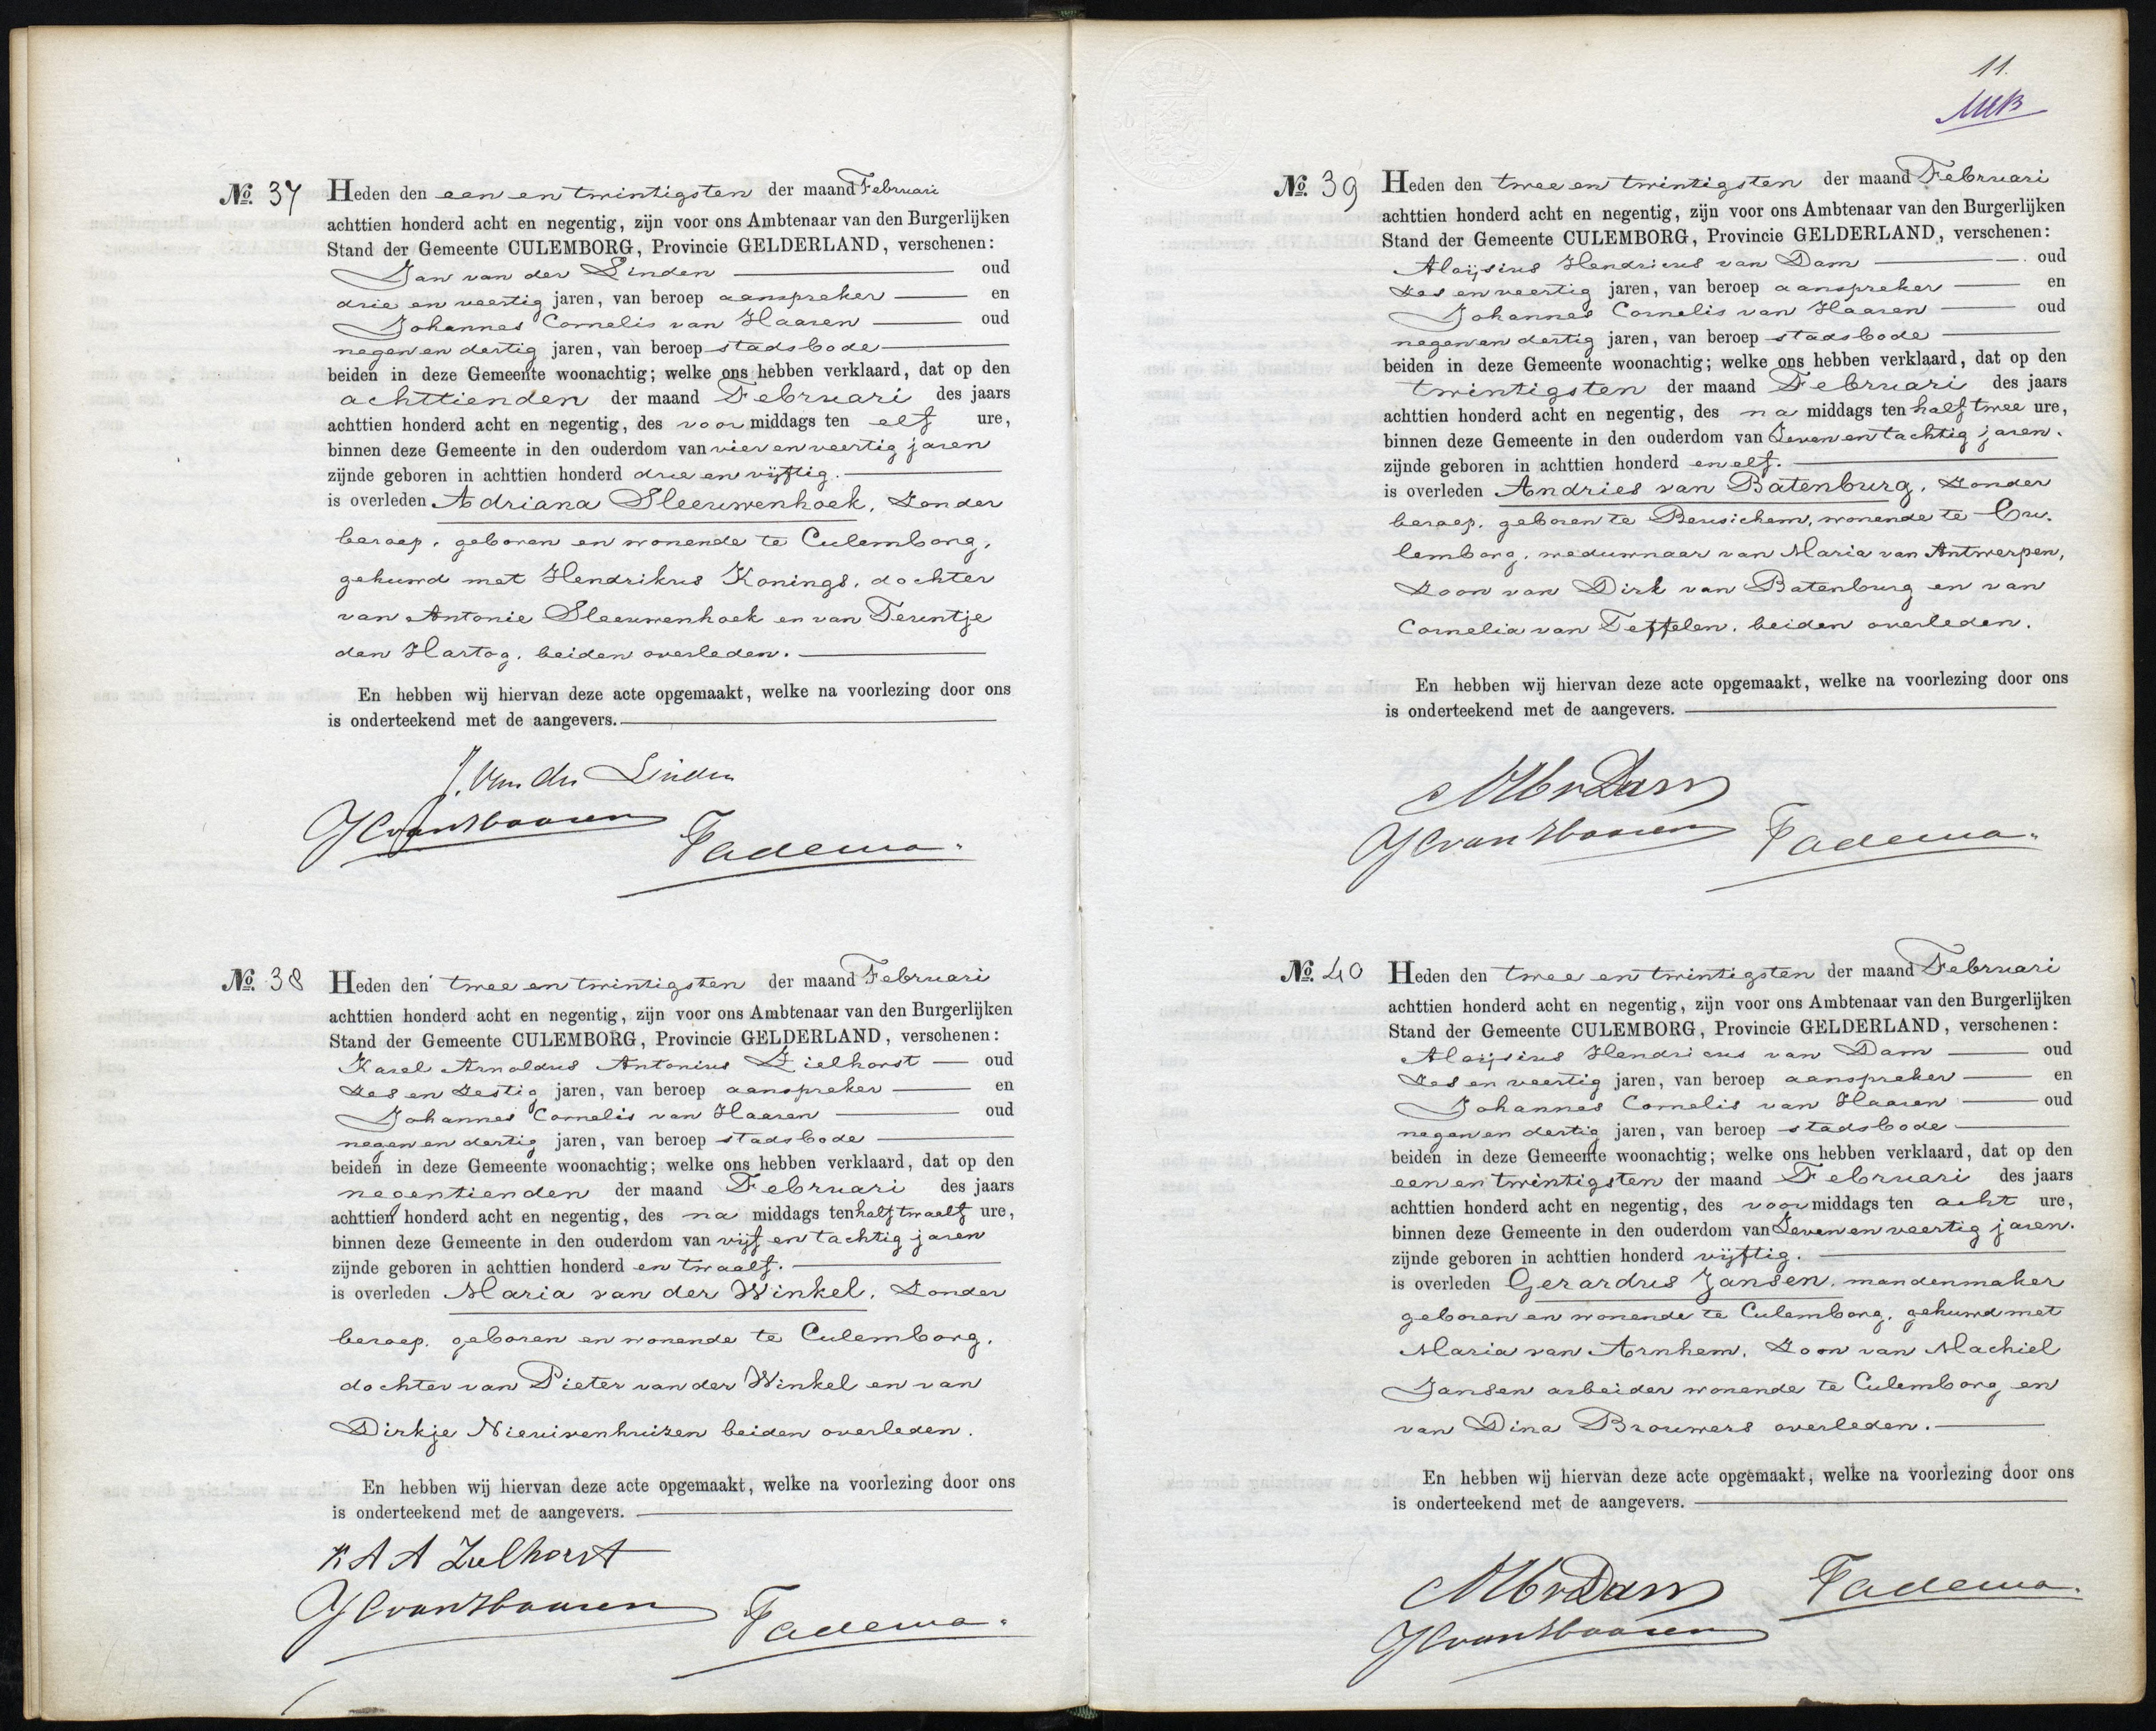 No. 37 Heden den een en twintigsten der maand Februari
achttien honderd acht en negentig, zijn voor ons Ambtenaar van den Burgerlijken
Stand der Gemeente CULEMBORG, Provincie GELDERLAND, verschenen:
Jan van der Linden oud
drie en veertig jaren, van beroep aanspreker en
Johannes Cornelis van Haaren oud
negen en dertig jaren, van beroep stadsbode
beiden in deze Gemeente woonachtig; welke ons hebben verklaard, dat op den
achttienden der maand Februari des jaars
achttien honderd acht en negentig, des voor middags ten elf ure,
binnen deze Gemeente in den ouderdom van vier en veertig jaren
zijnde geboren in achttien honderd drie en vijftig.
is overleden Adriana Sleeuwenhoek, Zonder
beroep, geboren en wonende te Culemborg,
gehuwd met Hendrikus Konings, dochter
van Antonie Sleeuwenhoek en van Teuntje
den Hartog, beiden overleden.
En hebben wij hiervan deze acte opgemaakt, welke na voorlezing door ons
is onderteekend met de aangevers.
J. Van der Linden
JC van Haaren
Tadema.
No. 38 Heden den twee en twintigsten der maand Februari
achttien honderd acht en negentig, zijn voor ons Ambtenaar van den Burgerlijken
Stand der Gemeente CULEMBORG, Provincie GELDERLAND, verschenen:
Karel Arnoldus Antonius Zielhorst oud
Zes en Zestig jaren, van beroep aanspreker en
Johannes Cornelis van Haaren oud
negen en dertig jaren, van beroep stadsbode
beiden in deze Gemeente woonachtig; welke ons hebben verklaard, dat op den
negentienden der maand Februari des jaars
achttien honderd acht en negentig, des na middags ten half twaalf ure,
binnen deze Gemeente in den ouderdom van vijf en tachtig jaren
zijnde geboren in achttien honderd en twaalf.
is overleden Maria van der Winkel, Zonder
beroep, geboren en wonende te Culemborg,
dochter van Pieter van der Winkel en van
Dirkje Nieuwenhuizen beiden overleden.
En hebben wij hiervan deze acte opgemaakt, welke na voorlezing door ons
is onderteekend met de aangevers.
K A A Zielhorst
JC van Haaren
Tadema.
11.
No. 39 Heden den twee en twintigsten der maand Februari
achttien honderd acht en negentig, zijn voor ons Ambtenaar van den Burgerlijken
Stand der Gemeente CULEMBORG, Provincie GELDERLAND, verschenen:
Aloijsius Hendricus van Dam oud
Zes en veertig jaren, van beroep aanspreker en
Johannes Cornelis van Haaren oud
negen en dertig jaren, van beroep stadsbode
beiden in deze Gemeente woonachtig; welke ons hebben verklaard, dat op den
twintigsten der maand Februari des jaars
achttien honderd acht en negentig, des na middags ten half twee ure,
binnen deze Gemeente in den ouderdom van Zeven en tachtig jaren.
zijnde geboren in achttien honderd en elf.
is overleden Andries van Batenburg, Zonder
beroep, geboren te Beusichem, wonende te Cu-
lemborg, weduwnaar van Maria van Antwerpen,
Zoon van Dirk van Batenburg en van
Cornelia van Teffelen, beiden overleden.
En hebben wij hiervan deze acte opgemaakt, welke na voorlezing door ons
is onderteekend met de aangevers.
AHvDam
JC van Haaren
Tadema.
No. 40 Heden den twee en twintigsten der maand Februari
achttien honderd acht en negentig, zijn voor ons Ambtenaar van den Burgerlijken
Stand der Gemeente CULEMBORG, Provincie GELDERLAND, verschenen:
Aloijsius Hendricus van Dam oud
Zes en veertig jaren, van beroep aanspreker en
Johannes Cornelis van Haaren oud
negen en dertig jaren, van beroep stadsbode
beiden in deze Gemeente woonachtig; welke ons hebben verklaard, dat op den
een en twintigsten der maand Februari des jaars
achttien honderd acht en negentig, des voor middags ten acht ure,
binnen deze Gemeente in den ouderdom van Zeven en veertig jaren.
zijnde geboren in achttien honderd vijftig.
is overleden Gerardus Jansen, mandenmaker
geboren en wonende te Culemborg, gehuwd met
Maria van Arnhem, Zoon van Machiel
Jansen arbeider wonende te Culemborg en
van Dina Brouwers overleden.
En hebben wij hiervan deze acte opgemaakt, welke na voorlezing door ons
is onderteekend met de aangevers.
AHvDam
Tadema.
JC van Haaren